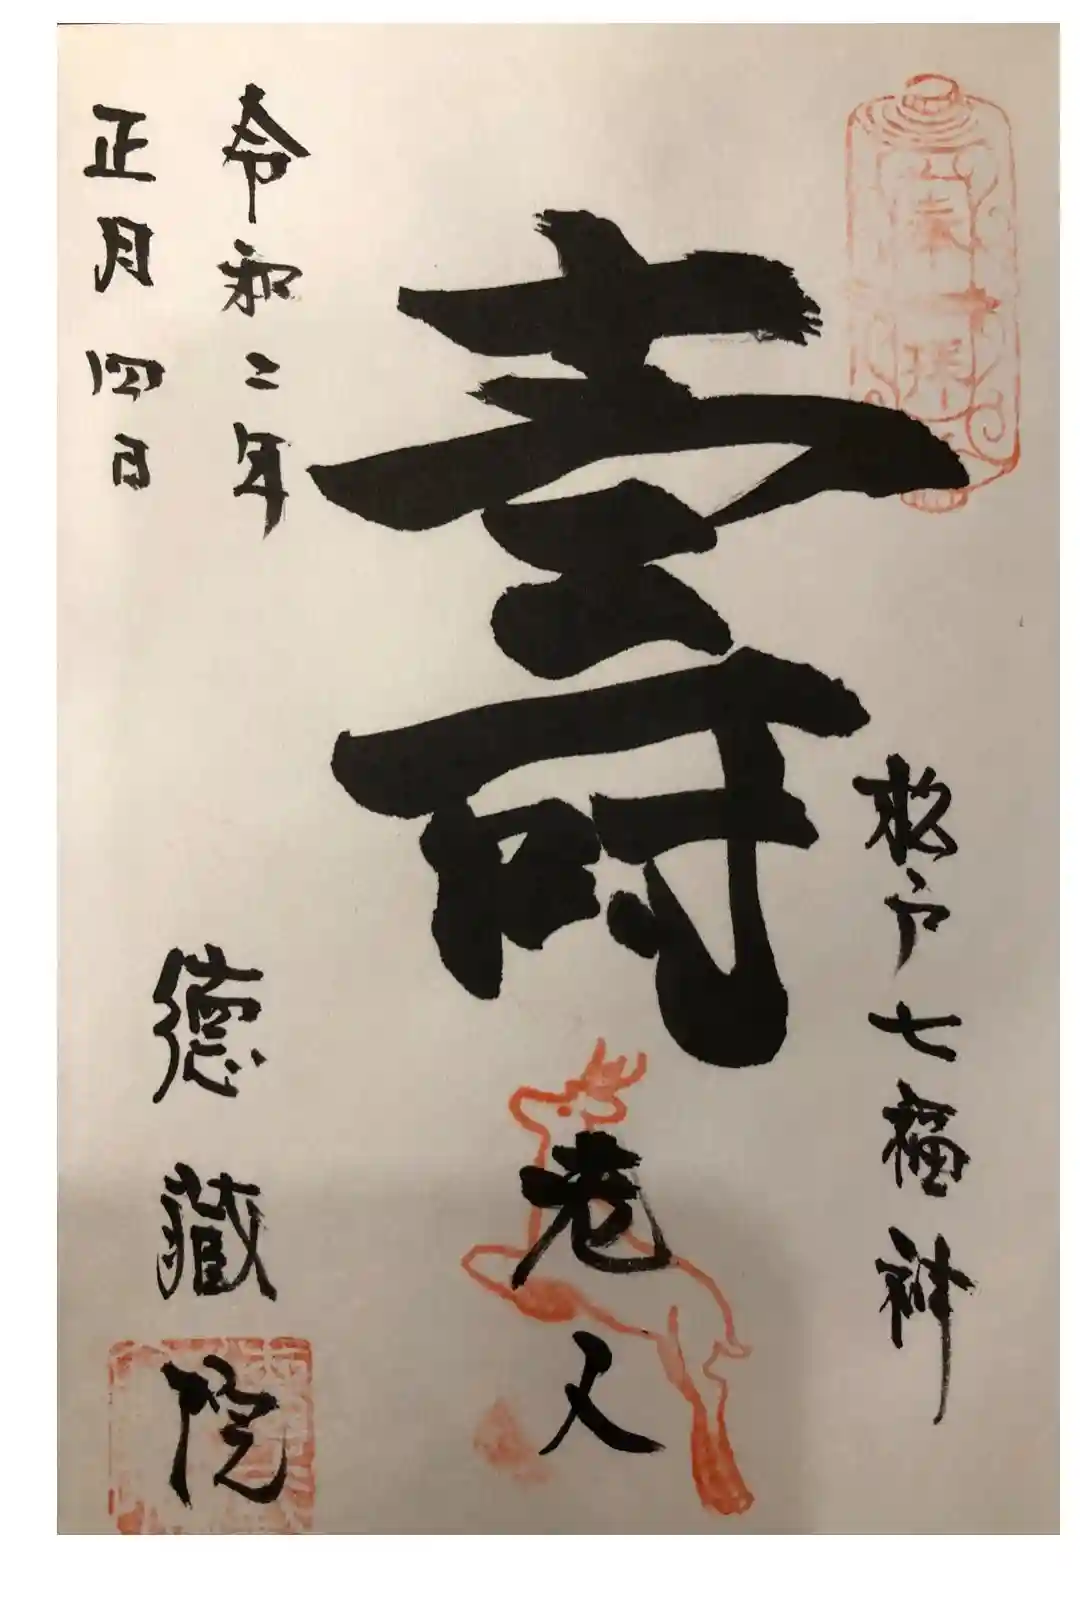 奉拝
松戸七福神
壽老人
令和二年
正月四日
徳蔵院